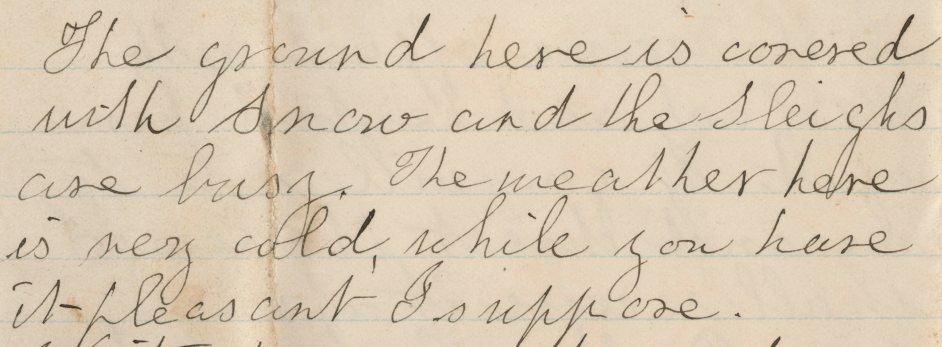 The ground here is covered
with snow and the Sleighs
are busy. The weather here
is very cold, while you have
it pleasant I suppose.